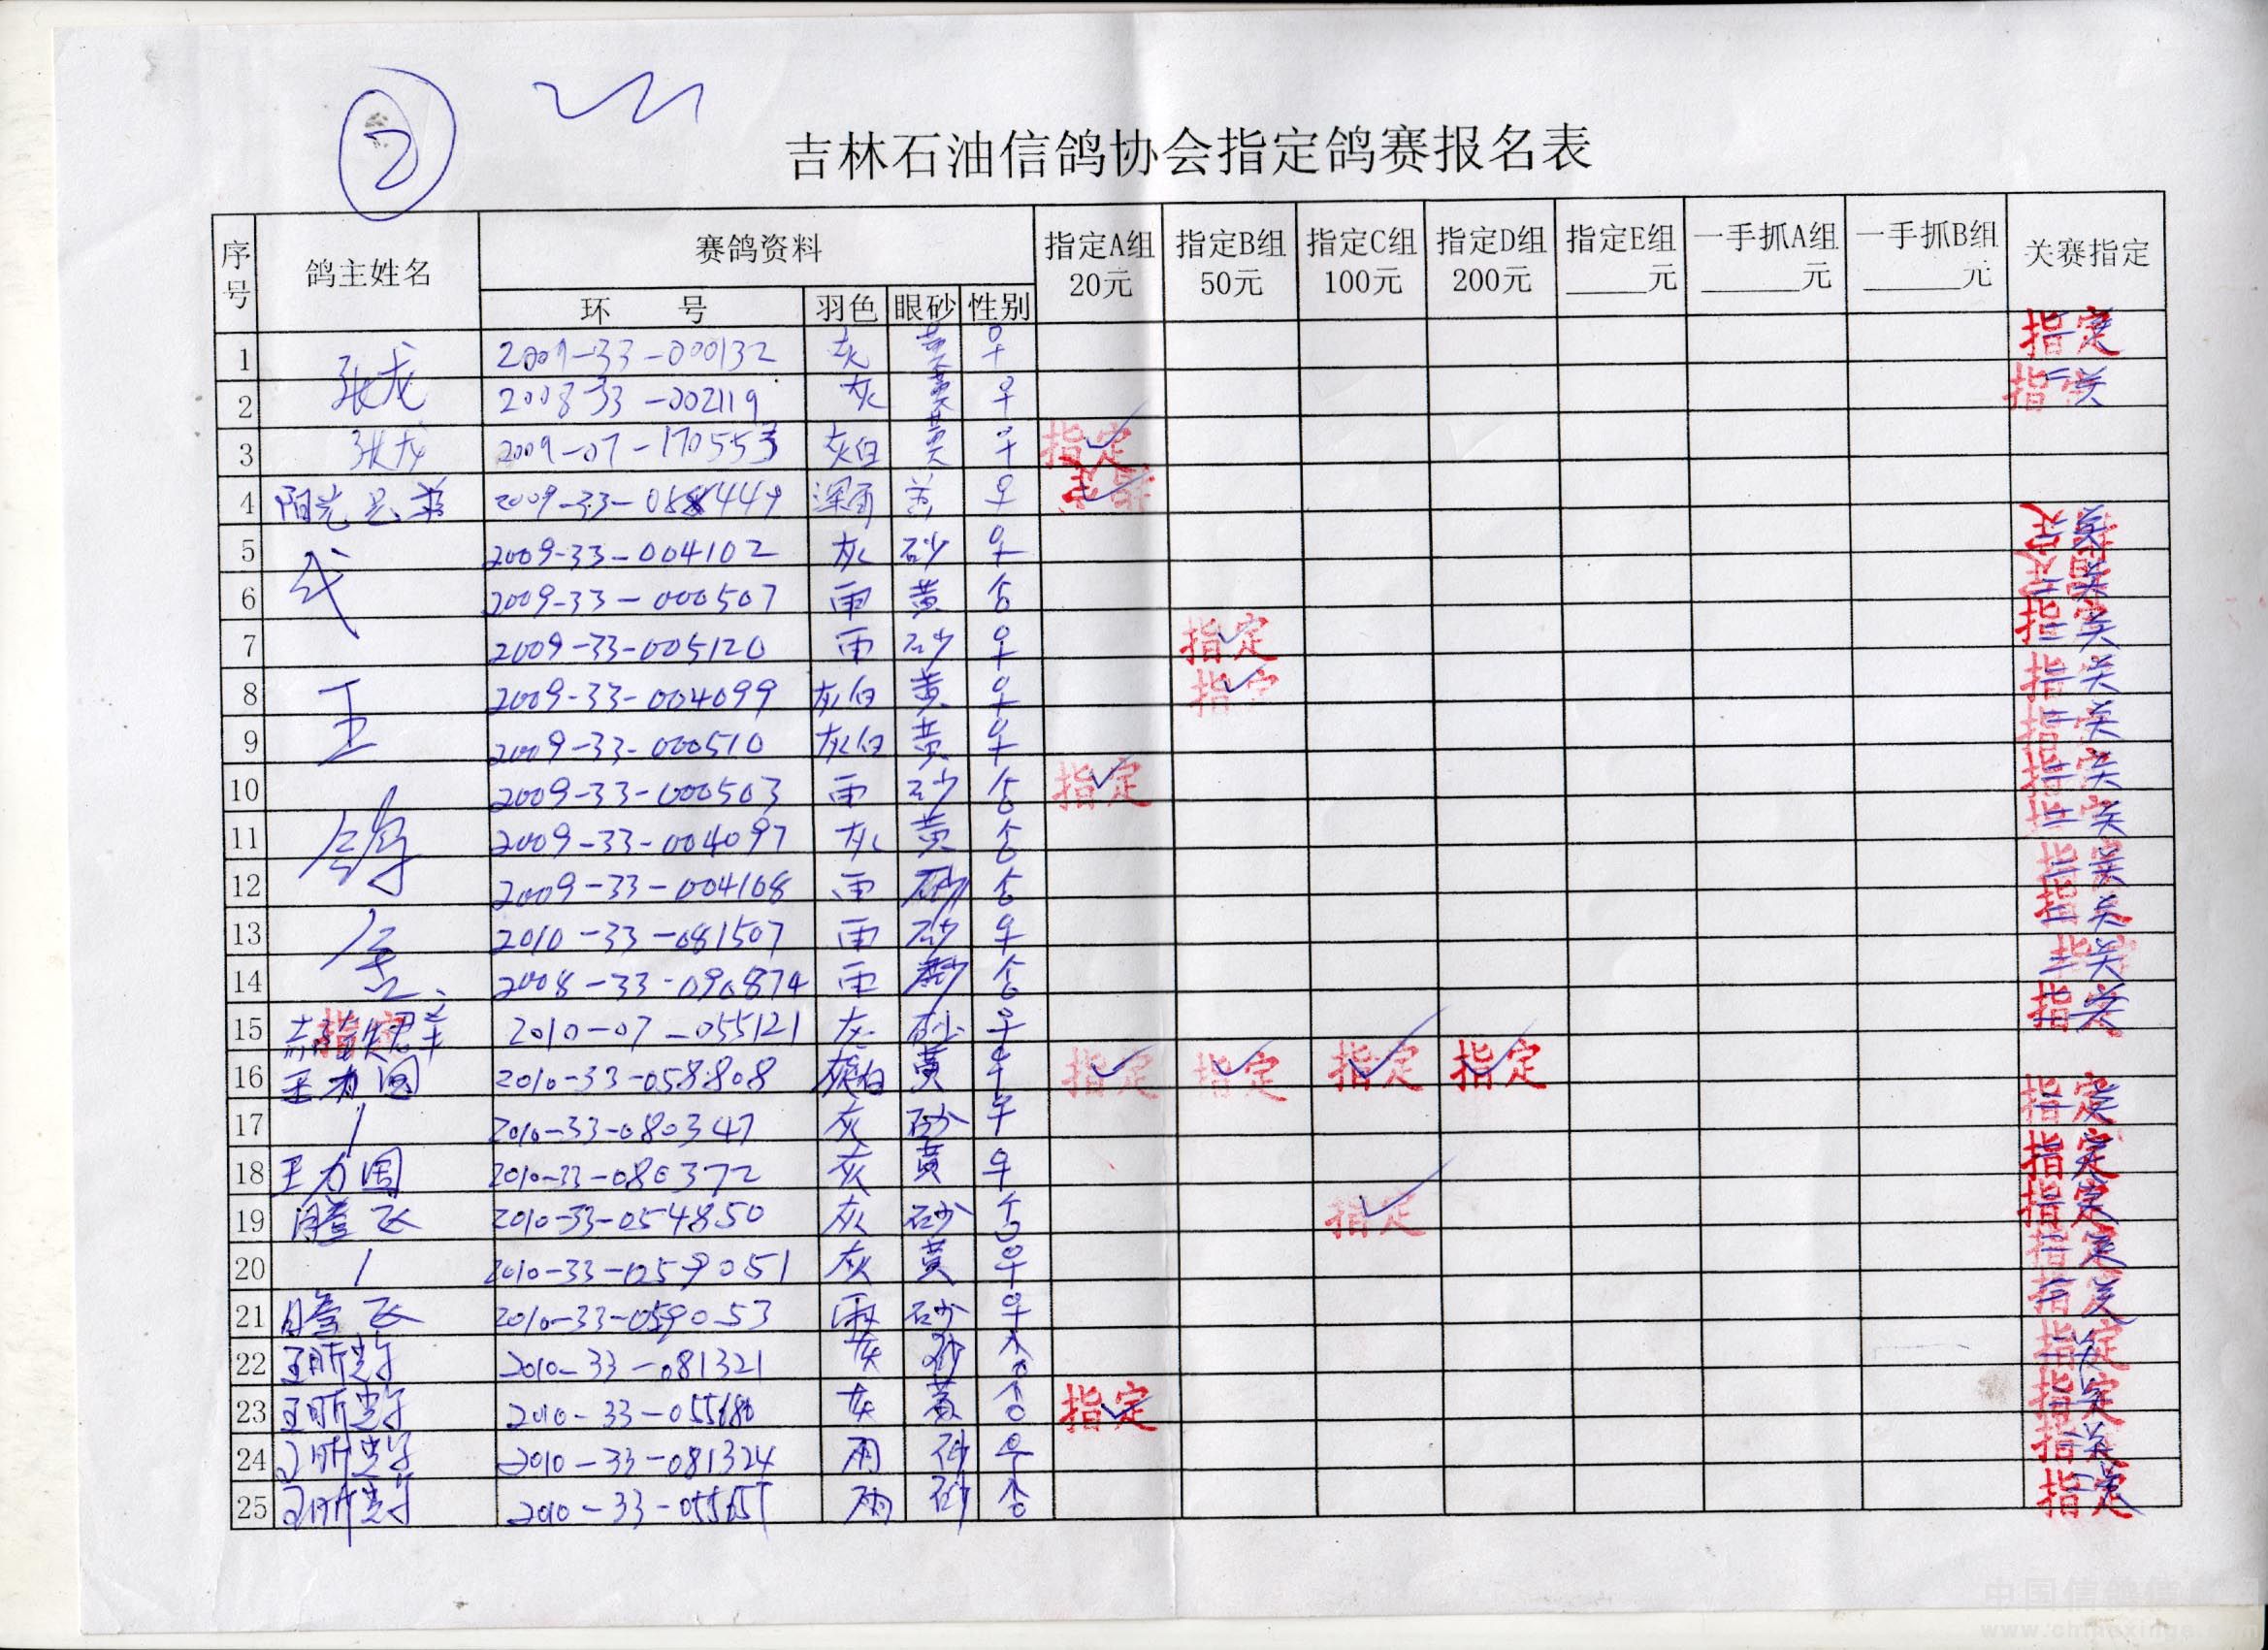 ②
吉林石油信鸽协会指定鸽赛报名表
序号 鸽主姓名 赛鸽资料 指定A组 20元 指定B组 50元 指定C组 100元 指定D组 200元 指定E组 ____元 一手抓A组 ____元 一手抓B组 ____元 关赛指定
环 号 羽色 眼砂 性别
1 张龙 2009-33-000132 灰 黄 ♀ 指定
2 2008-33-002119 灰 黄 ♀ 指定 二关
3 张龙 2009-07-170553 灰白 黄 ♀ 指定
4 阳光 2009-33- 449 深雨 黄 ♀ 指定
5 代 2009-33-004102 灰 砂 ♀ 指定 二关
6 2009-33-000507 雨 黄 ♂ 指定 二关
7 2009-33-005120 雨 砂 ♀ 指定 指定 二关
8 王 2009-33-004099 灰白 黄 ♀ 指定 指定 二关
9 2009-33-000510 灰白 黄 ♀ 指定 二关
10 2009-33-000503 雨 砂 ♂ 指定 指定 二关
11 鸽 2009-33-004097 灰 黄 ♂ 指定 二关
12 2009-33-004108 雨 砂 ♂ 指定 二关
13 舍 2010-33-081507 雨 砂 ♀ 指定 二关
14 2008-33-090874 雨 砂 ♂ 指定 二关
15 指定 2010-07-055121 灰 砂 ♀ 指定 二关
16 王力国 2010-33-058808 灰白 黄 ♀ 指定 指定 指定 指定
17 2010-33-080347 灰 砂 ♀ 指定 二关
18 王力国 2010-33-080372 灰 黄 ♀ 指定 二关
19 腾飞 2010-33-054850 灰 砂 ♂ 指定 指定 二关
20 2010-33-059051 灰 黄 ♀ 指定 二关
21 腾飞 2010-33-059053 雨 砂 ♀ 指定 二关
22 2010-33-081321 灰 砂 ♂ 指定 二关
23 2010-33-055180 灰 黄 ♂ 指定 指定 二关
24 2010-33-081324 雨 砂 ♀ 指定 二关
25 2010-33- 雨 砂 ♂ 指定 二关